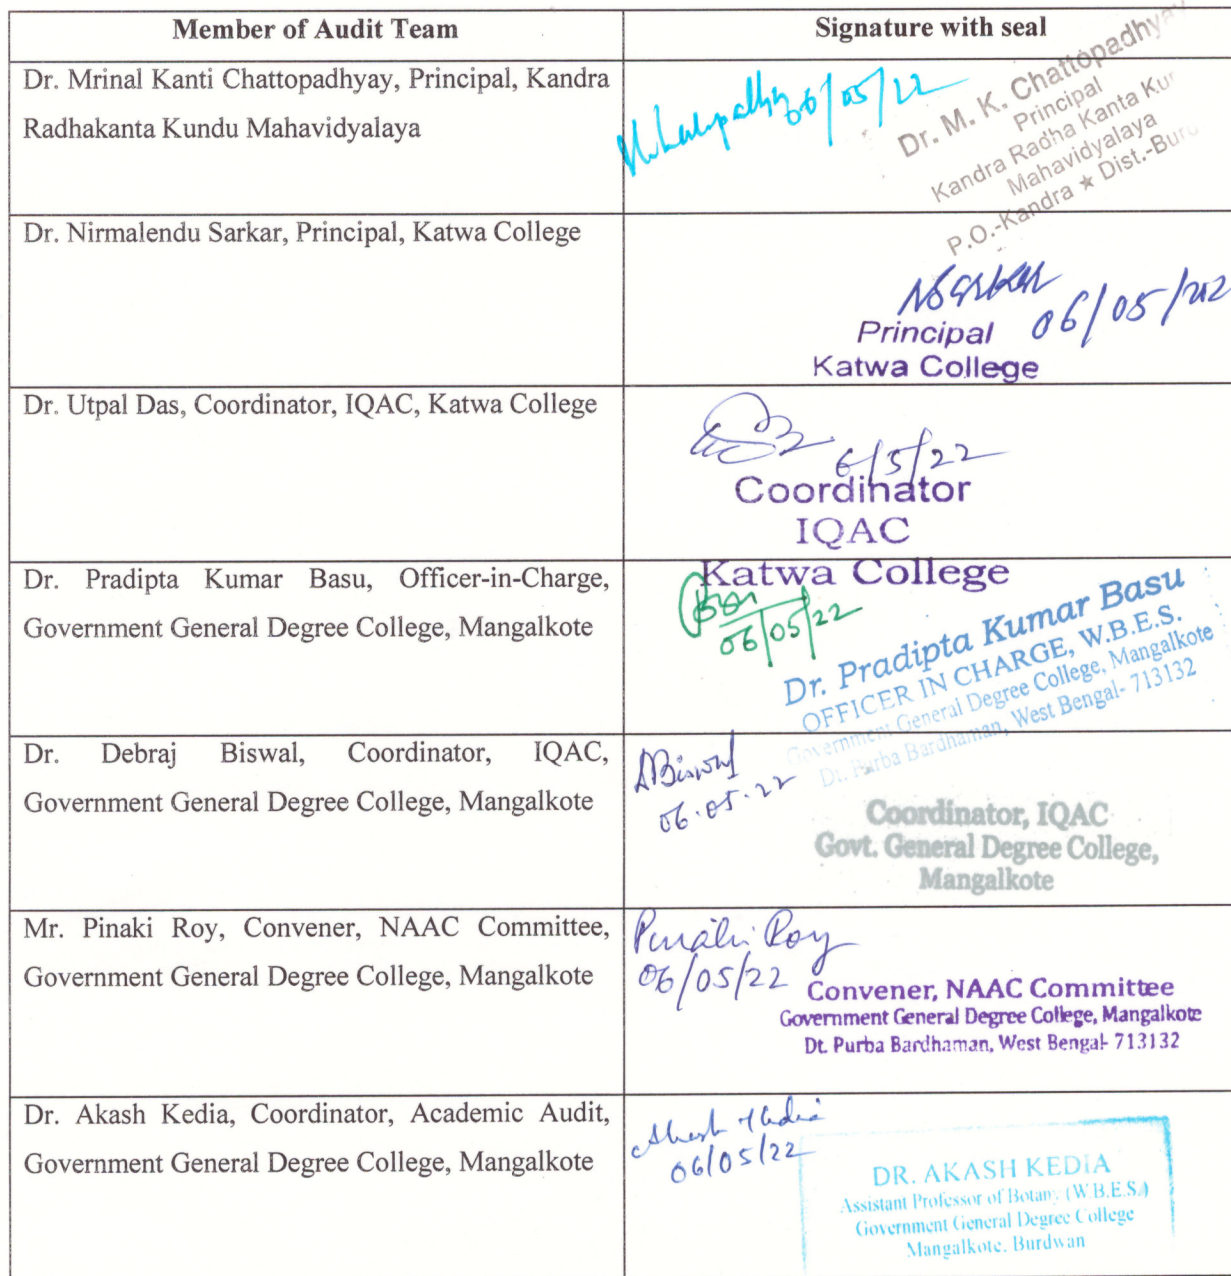 Member of Audit Team
Signature with seal
Dr. Mrinal Kanti Chattopadhyay, Principal, Kandra
Radhakanta Kundu Mahavidyalaya
06/05/22
Dr. M. K. Chattopadhyay
Principal
Kandra Radha Kanta Ku
Mahavidyalaya
P.O.-Kandra ★ Dist.-Bur
Dr. Nirmalendu Sarkar, Principal, Katwa College
NSarkar
06/05/202
Principal
Katwa College
Dr. Utpal Das, Coordinator, IQAC, Katwa College
6/5/22
Coordinator
IQAC
Katwa College
Dr. Pradipta Kumar Basu, Officer-in-Charge,
Government General Degree College, Mangalkote
06/05/22
Dr. Pradipta Kumar Basu
OFFICER IN CHARGE, W.B.E.S.
Government General Degree College, Mangalkote
Dt. Purba Bardhaman, West Bengal- 713132
Dr. Debraj Biswal, Coordinator, IQAC,
Government General Degree College, Mangalkote
DBiswal
06.05.22
Coordinator, IQAC
Govt. General Degree College,
Mangalkote
Mr. Pinaki Roy, Convener, NAAC Committee,
Government General Degree College, Mangalkote
Pinaki Roy
06/05/22
Convener, NAAC Committee
Government General Degree College, Mangalkote
Dt. Purba Bardhaman, West Bengal- 713132
Dr. Akash Kedia, Coordinator, Academic Audit,
Government General Degree College, Mangalkote
Akash Kedia
06/05/22
DR. AKASH KEDIA
Assistant Professor of Botany (W.B.E.S.)
Government General Degree College
Mangalkote, Burdwan